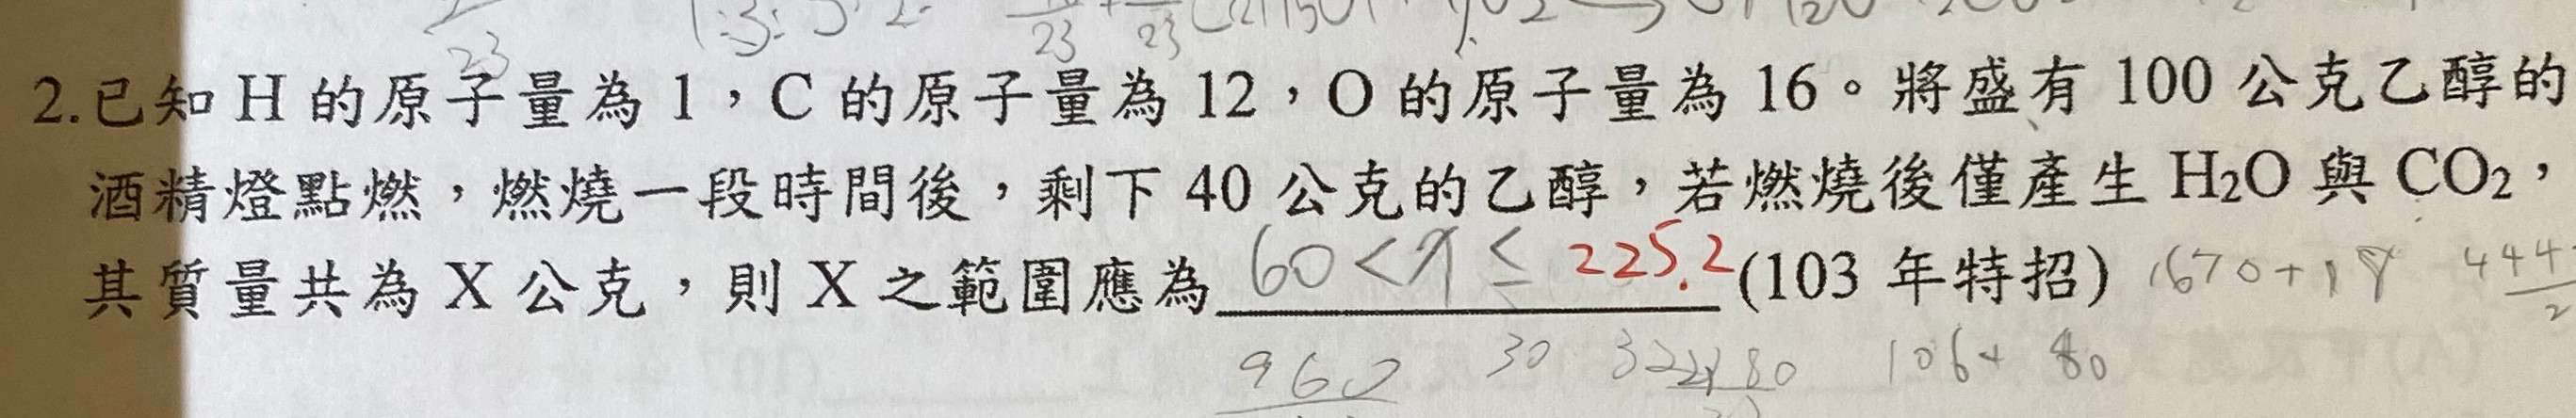 2.已知 H 的原子量為 1，C 的原子量為 12，O 的原子量為 16。將盛有 100 公克乙醇的
酒精燈點燃，燃燒一段時間後，剩下 40 公克的乙醇，若燃燒後僅產生 H₂O 與 CO₂，
其質量共為 X 公克，則 X 之範圍應為 60<X≤225.2 (103 年特招)
960 30 106+80